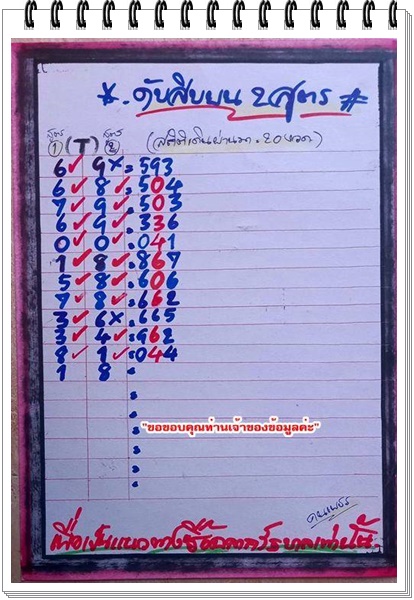 *. ดับสิบบน 2 สูตร #
สูตร ① (T) สูตร ②
(สถิติเดินผ่านมา = 20 งวด)
6✓ 9× = 593
6✓ 8✓ = 504
7✓ 9✓ = 503
6✓ 9✓ = 336
0✓ 0✓ = 041
1✓ 8✓ = 867
5✓ 8✓ = 606
7✓ 8✓ = 662
3✓ 6× = 665
3✓ 4✓ = 962
8✓ 1✓ = 044
1 8 =
"ขอขอบคุณท่านเจ้าของข้อมูลค่ะ"
คนเพชร
เพื่อเป็นแนวทางซื้อสลากกับรัฐบาลเท่านั้น